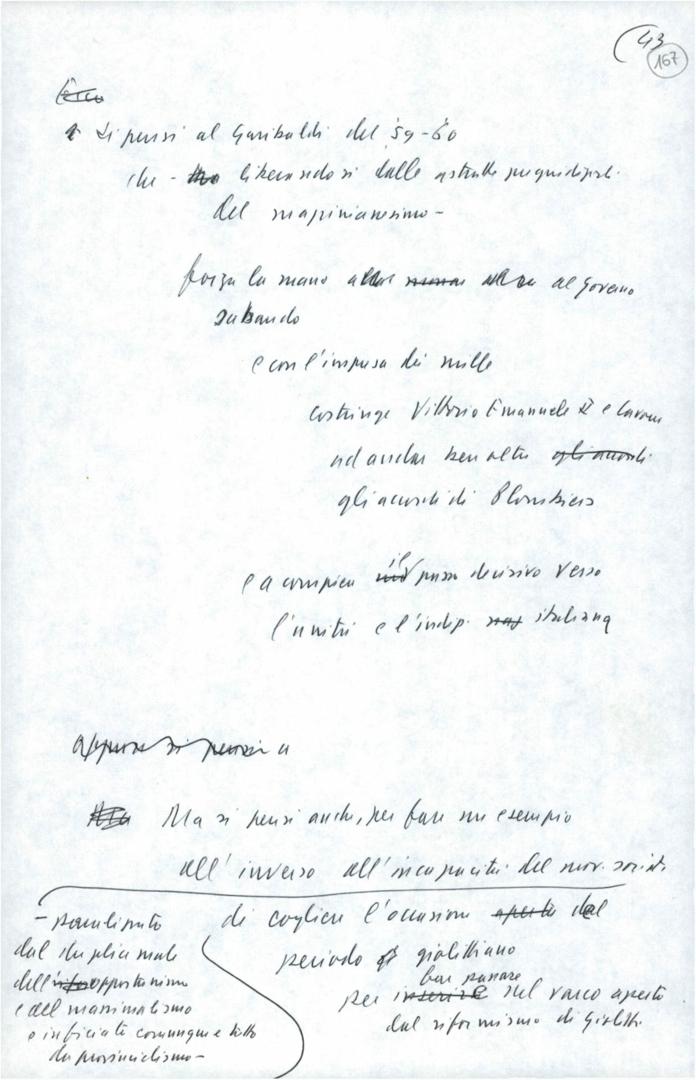 (43
167
Si pensi al Garibaldi del '59-'60
che - liberandosi dalle astratte pregiudiziali
del mazzinianesimo -
forza la mano al governo
sabaudo
e con l'impresa dei mille
costringe Vittorio Emanuele II e Cavour
ad andar ben oltre gli accordi
gli accordi di Plombières
e a compiere il passo decisivo verso
l'unità e l'indip. italiana
oppure si pensi a
Ma si pensi anche, per fare un esempio
all'inverso all'incapacità del mov. socialis.
- paralizzato
dal duplice male
dell'opportunismo
e del massimalismo
e inficiato comunque e tutto
da provincialismo -
di cogliere l'occasione aperta del
periodo giolittiano
per far passare nel varco aperto
dal riformismo di Giolitti.